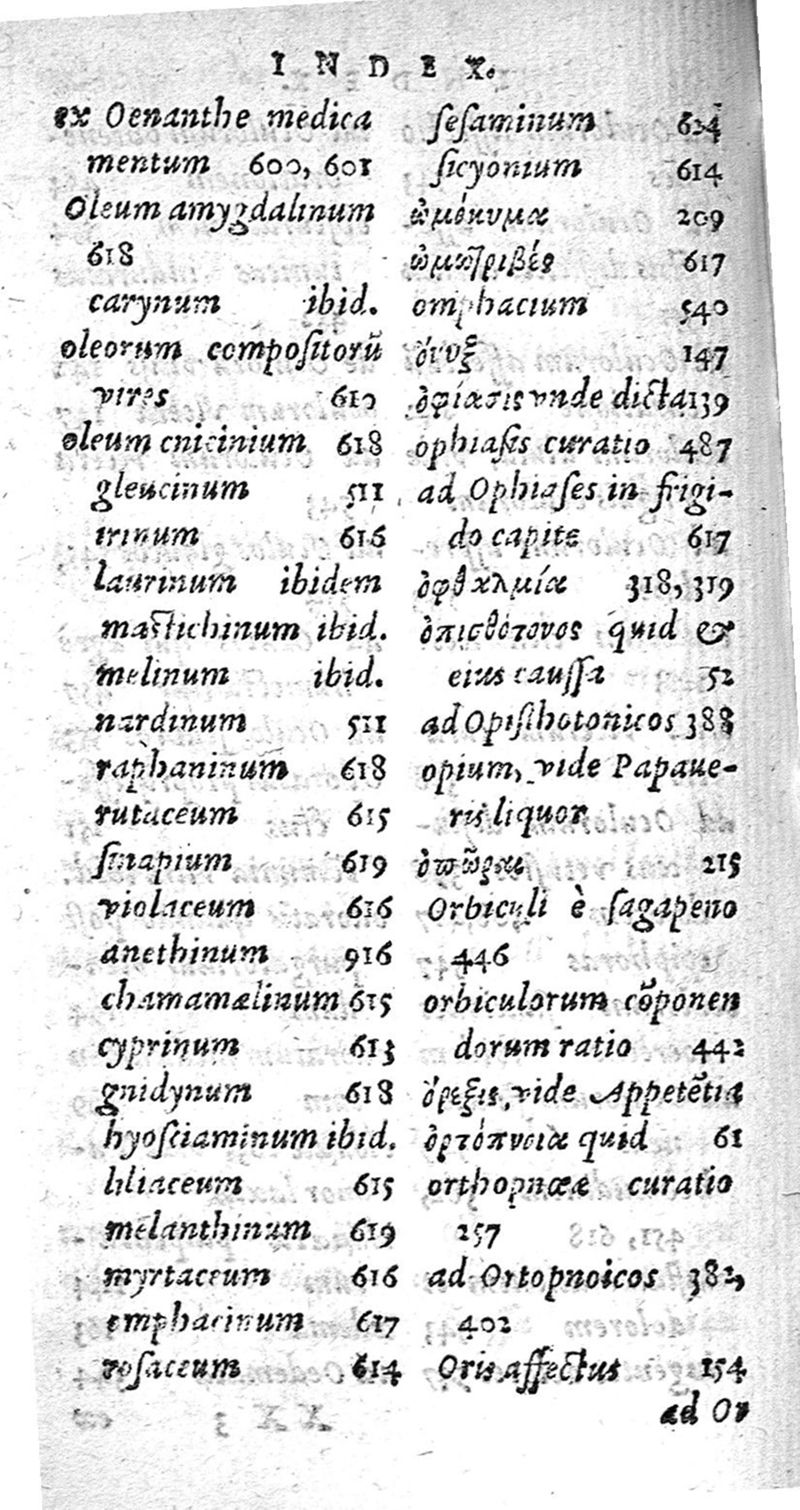 INDEX.
ex Oenanthe medica
mentum 600, 601
Oleum amygdalinum
618
carynum ibid.
oleorum compoſitorũ
vires 610
oleum cnicinium 618
gleucinum 511
irinum 616
laurinum ibidem
maſtichinum ibid.
melinum ibid.
nardinum 511
raphaninum 618
rutaceum 615
ſinapium 619
violaceum 616
anethinum 916
chamamælinum 615
cyprinum 613
gnidynum 618
hyoſciaminum ibid.
liliaceum 615
melanthinum 619
myrtaceum 616
omphacinum 617
roſaceum 614
ſeſaminum 624
ſicyonium 614
ὠμόκυμα 209
617
omphacium 540
ὄνυξ 147
ὀφίασις vnde dicta 139
ophiaſis curatio 487
ad Ophiaſes in frigi-
do capite 617
ὀφθαλμία 318, 319
ὀπισθότονος quid &
eius cauſſa 52
ad Opiſthotonicos 388
opium, vide Papaue-
ris liquor
ὀπῶραι 215
Orbiculi è ſagapeno
446
orbiculorum cõponen
dorum ratio 442
ὄρεξις, vide Appetẽtia
ὀρτόπνοια quid 61
orthopnœæ curatio
257
ad Ortopnoicos 382,
402
Oris affectus 154
ad Or